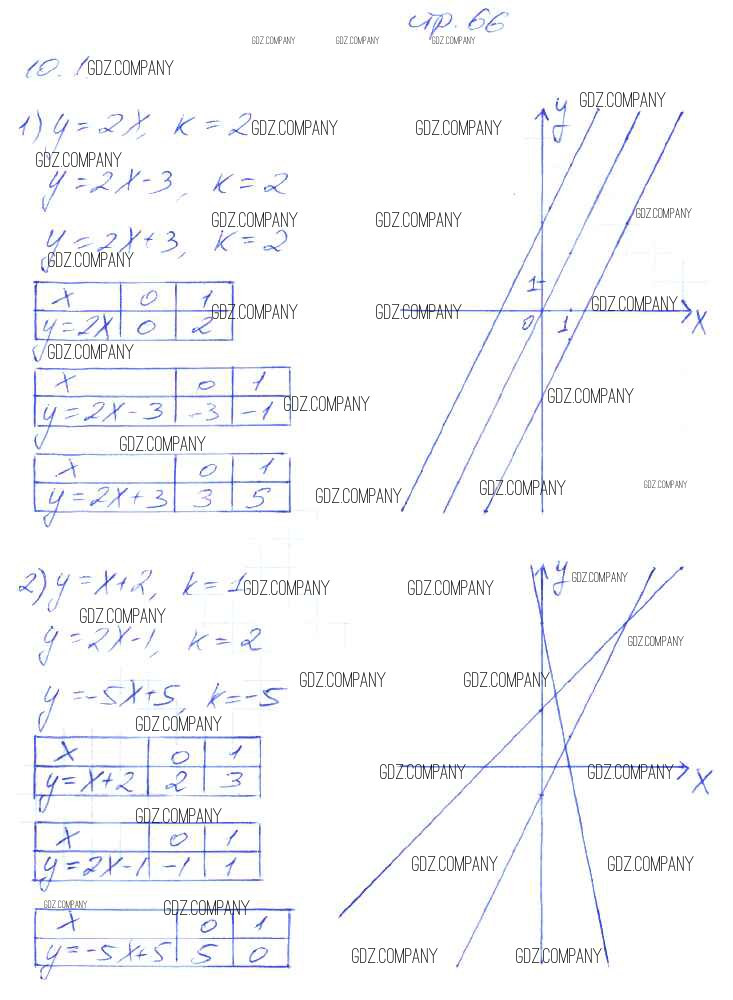 стр. 66
GDZ.COMPANY GDZ.COMPANY GDZ.COMPANY
10.1. GDZ.COMPANY
1) y = 2x, k = 2 GDZ.COMPANY GDZ.COMPANY
GDZ.COMPANY
y = 2x - 3, k = 2
GDZ.COMPANY GDZ.COMPANY
y = 2x + 3, k = 2
GDZ.COMPANY
x 0 1
y = 2x 0 2 GDZ.COMPANY GDZ.COMPANY
GDZ.COMPANY
x 0 1
y = 2x - 3 -3 -1 GDZ.COMPANY
GDZ.COMPANY
x 0 1
y = 2x + 3 3 5 GDZ.COMPANY
y GDZ.COMPANY
GDZ.COMPANY
1
GDZ.COMPANY
0 1 x
GDZ.COMPANY
GDZ.COMPANY GDZ.COMPANY
2) y = x + 2, k = 1 GDZ.COMPANY GDZ.COMPANY
GDZ.COMPANY
y = 2x - 1, k = 2
GDZ.COMPANY GDZ.COMPANY
y = -5x + 5, k = -5
GDZ.COMPANY
x 0 1
y = x + 2 2 3
GDZ.COMPANY
x 0 1
y = 2x - 1 -1 1
GDZ.COMPANY GDZ.COMPANY
x 0 1
y = -5x + 5 5 0
y GDZ.COMPANY
GDZ.COMPANY
GDZ.COMPANY GDZ.COMPANY x
GDZ.COMPANY GDZ.COMPANY
GDZ.COMPANY GDZ.COMPANY